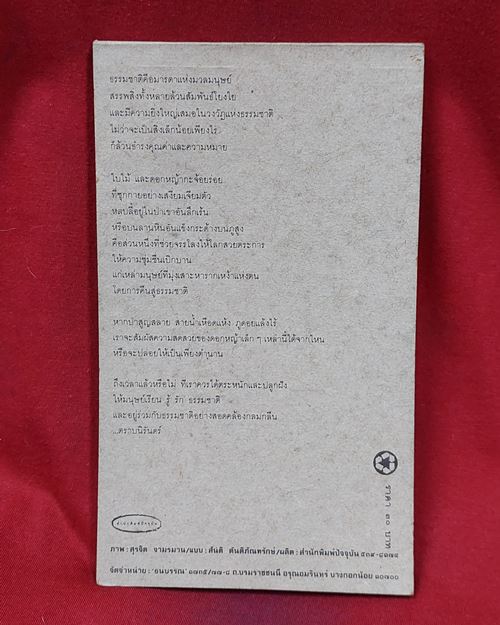 ธรรมชาติคือมารดาแห่งมวลมนุษย์
สรรพสิ่งทั้งหลายล้วนสัมพันธ์โยงใย
และมีความยิ่งใหญ่เสมอในวงวัฏแห่งธรรมชาติ
ไม่ว่าจะเป็นสิ่งเล็กน้อยเพียงไร
ก็ล้วนธำรงคุณค่าและความหมาย
ใบไม้ และดอกหญ้ากะจ้อยร่อย
ที่ซุกกายอย่างเสงี่ยมเจียมตัว
หลบลี้อยู่ในป่าเขาอันลึกเร้น
หรือบนลานหินอันแข็งกระด้างบนภูสูง
คือส่วนหนึ่งที่ช่วยจรรโลงให้โลกสวยตระการ
ให้ความชุ่มชื่นเบิกบาน
แก่เหล่ามนุษย์ที่มุ่งเสาะหารากเหง้าแห่งตน
โดยการคืนสู่ธรรมชาติ
หากป่าสูญสลาย สายน้ำเหือดแห้ง ภูดอยแล้งไร้
เราจะสัมผัสความสดสวยของดอกหญ้าเล็ก ๆ เหล่านี้ได้จากไหน
หรือจะปล่อยให้เป็นเพียงตำนาน
ถึงเวลาแล้วหรือไม่ ที่เราควรได้ตระหนักและปลูกฝัง
ให้มนุษย์เรียน รู้ รัก ธรรมชาติ
และอยู่ร่วมกับธรรมชาติอย่างสอดคล้องกลมกลืน
...ตราบนิรันดร์
ราคา ๑๐ บาท
สำนักพิมพ์ปัจจุบัน
ภาพ : ศุรจิต จามรมาน/แบบ : สันติ ตันติภัณฑรักษ์/ผลิต : สำนักพิมพ์ปัจจุบัน ๕๓๙-๘๑๗๔
จัดจำหน่าย : 'ธนบรรณ' ๑๗๓๕/๗๗-๘ ถ.บรมราชชนนี อรุณอมรินทร์ บางกอกน้อย ๑๐๗๐๐